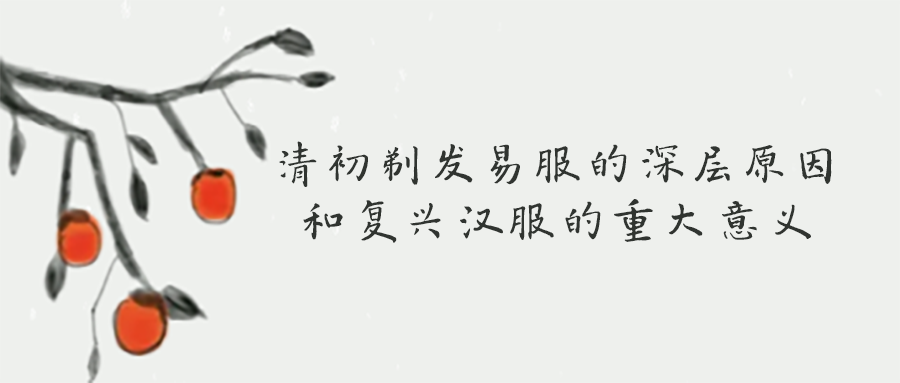 清初剃发易服的深层原因
和复兴汉服的重大意义